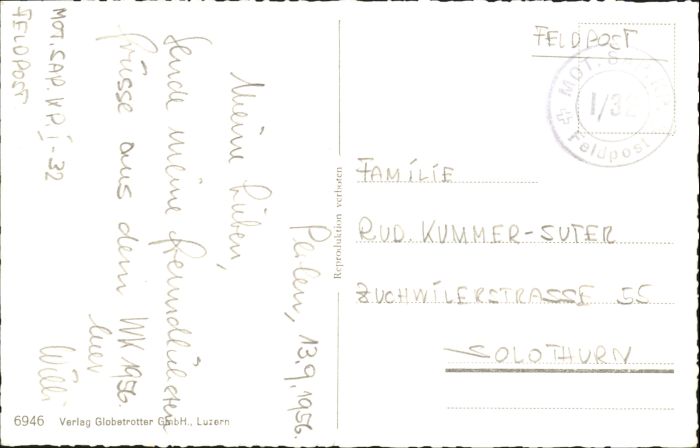 Perlen, 13.9.1956.
Meine Lieben,
Sende meine freundlichsten
Grüsse aus dem WK 1956.
Euer
Willi
MOT. SAP. KP. I-32
FELDPOST
6946 Verlag Globetrotter GmbH., Luzern
Reproduktion verboten
FELDPOST
MOT. S
I/32
Feldpost
FAMILIE
RUD. KUMMER-SUTER
ZUCHWILERSTRASSE 55
SOLOTHURN